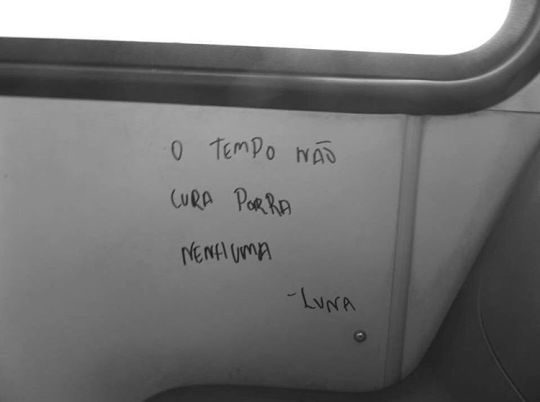 O TEMPO NÃO
CURA PORRA
NENHUMA
-LUNA